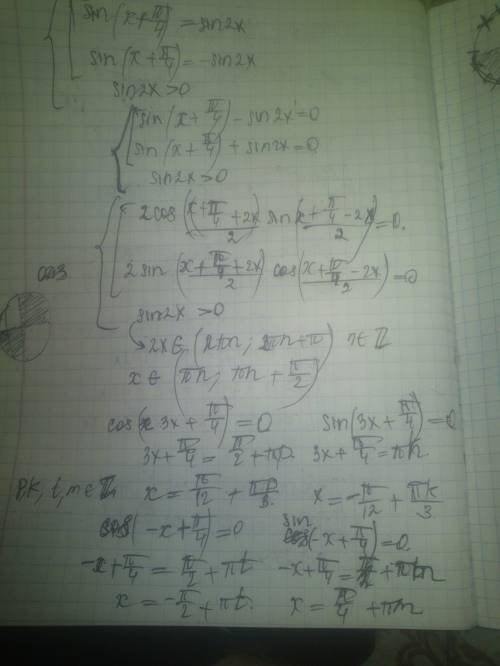 sin(x+π/4)=sin2x
sin(x+π/4)=-sin2x
sin2x>0
sin(x+π/4)-sin2x=0
sin(x+π/4)+sin2x=0
sin2x>0
2cos(x+π/4+2x)/2 sin(x+π/4-2x)/2=0.
2sin(x+π/4+2x)/2 cos(x+π/4-2x)/2=0
sin2x>0
2x∈(2πn; 2πn+π) n∈Z
x∈(πn; πn+π/2)
cos(3x+π/4)=0 sin(3x+π/4)=0
3x+π/4=π/2+πp 3x+π/4=πk
p,k,t,m∈Z x=π/12+πp/3. x=-π/12+πk/3
cos(-x+π/4)=0 sin(-x+π/4)=0
-x+π/4=π/2+πt -x+π/4=πm
x=-π/2+πt. x=π/4+πm